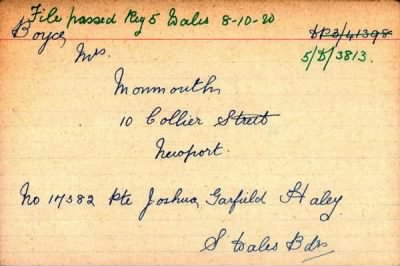 File passed Reg 5 Wales 8-10-20
Boyce, DP3/41398
Mrs. 5/D/3813.
Monmouth
10 Collier Street
Newport.
No 17382 Pte Joshua Garfield Haley
S Wales Bdrs